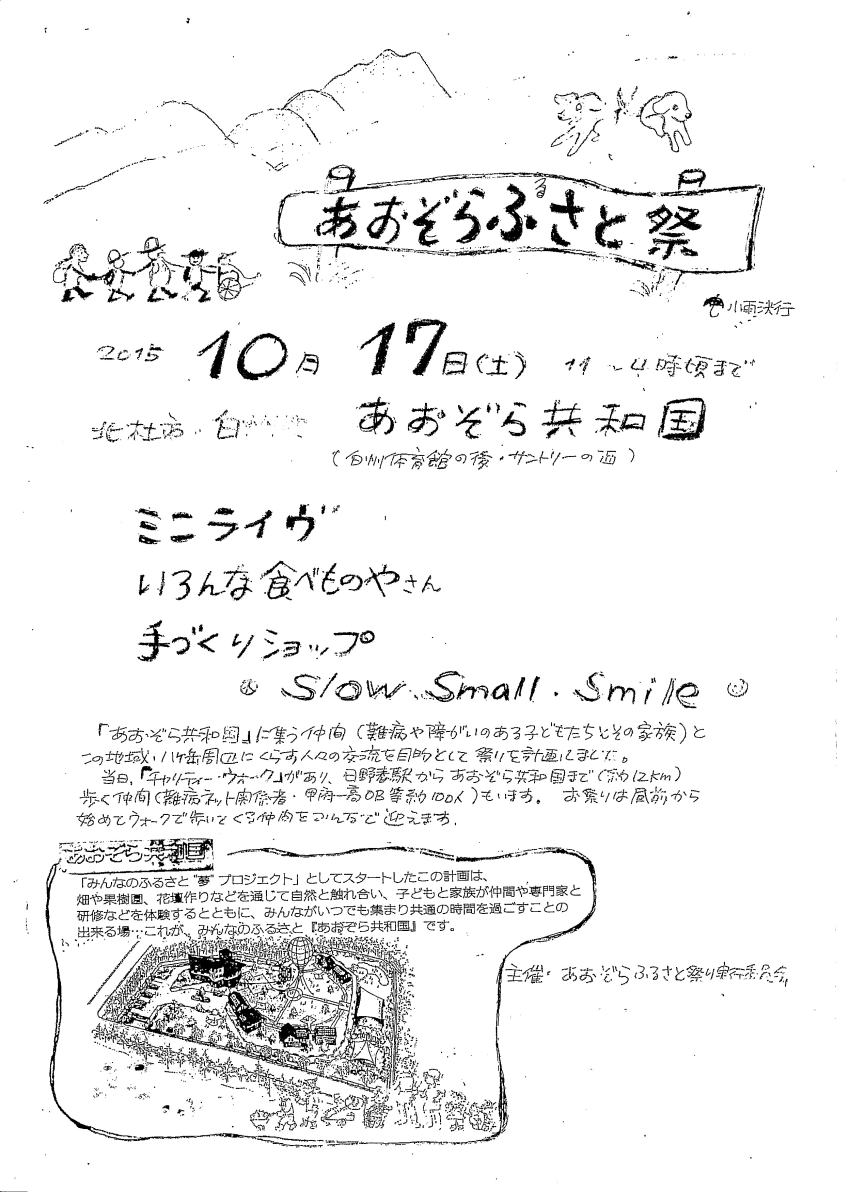 あおぞらふるさと祭
小雨決行
2015 10月 17日(土) 11~4時頃まで
北杜市・白州町 あおぞら共和国
(白州体育館の後・サントリーの西)
ミニライヴ
いろんな食べものやさん
手づくりショップ
Slow. Small. Smile
『あおぞら共和国』に集う仲間(難病や障がいのある子どもたちとその家族)と
この地域・八ヶ岳周辺にくらす人々の交流を目的として祭りを計画しました。
当日、『チャリティー・ウォーク』があり、日野春駅からあおぞら共和国まで(約12km)
歩く仲間(難病ネット関係者・甲府一高OB等約100人)もいます。 お祭りは昼前から
始めてウォークで歩いてくる仲間をみんなで迎えます.
あおぞら共和国
「みんなのふるさと"夢"プロジェクト」としてスタートしたこの計画は、
畑や果樹園、花壇作りなどを通じて自然と触れ合い、子どもと家族が仲間や専門家と
研修などを体験するとともに、みんながいつでも集まり共通の時間を過ごすことの
出来る場…これが、みんなのふるさと『あおぞら共和国』です。
主催・あおぞらふるさと祭り実行委員会